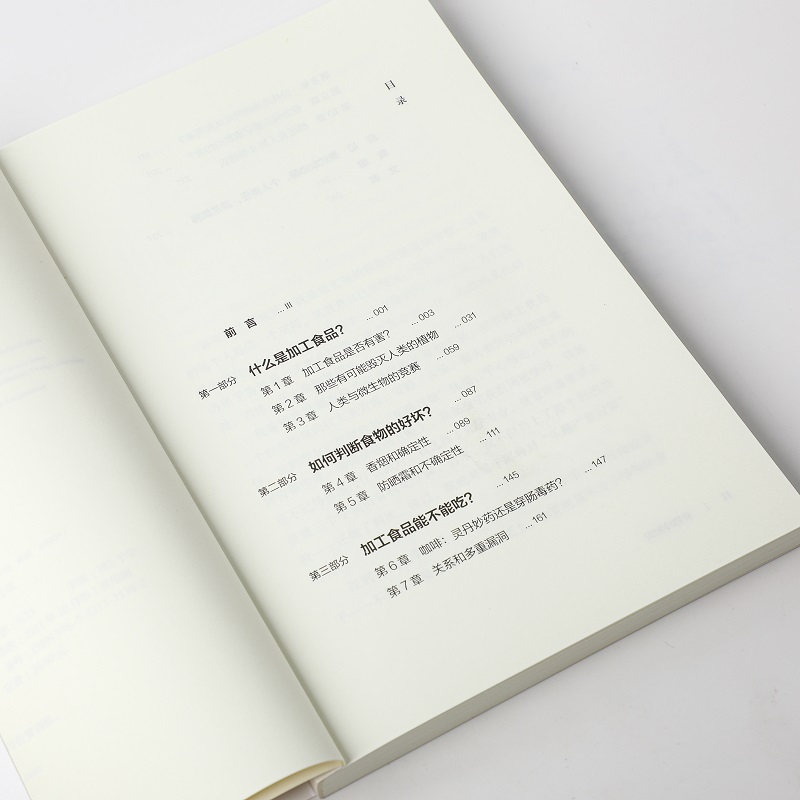 目录
前言 …III
第一部分 什么是加工食品？ …001
第1章 加工食品是否有害？ …003
第2章 那些有可能毁灭人类的植物 …031
第3章 人类与微生物的竞赛 …059
第二部分 如何判断食物的好坏？ …087
第4章 香烟和确定性 …089
第5章 防晒霜和不确定性 …111
第三部分 加工食品能不能吃？ …145
第6章 咖啡：灵丹妙药还是穿肠毒药？ …147
第7章 关系和多重漏洞 …161